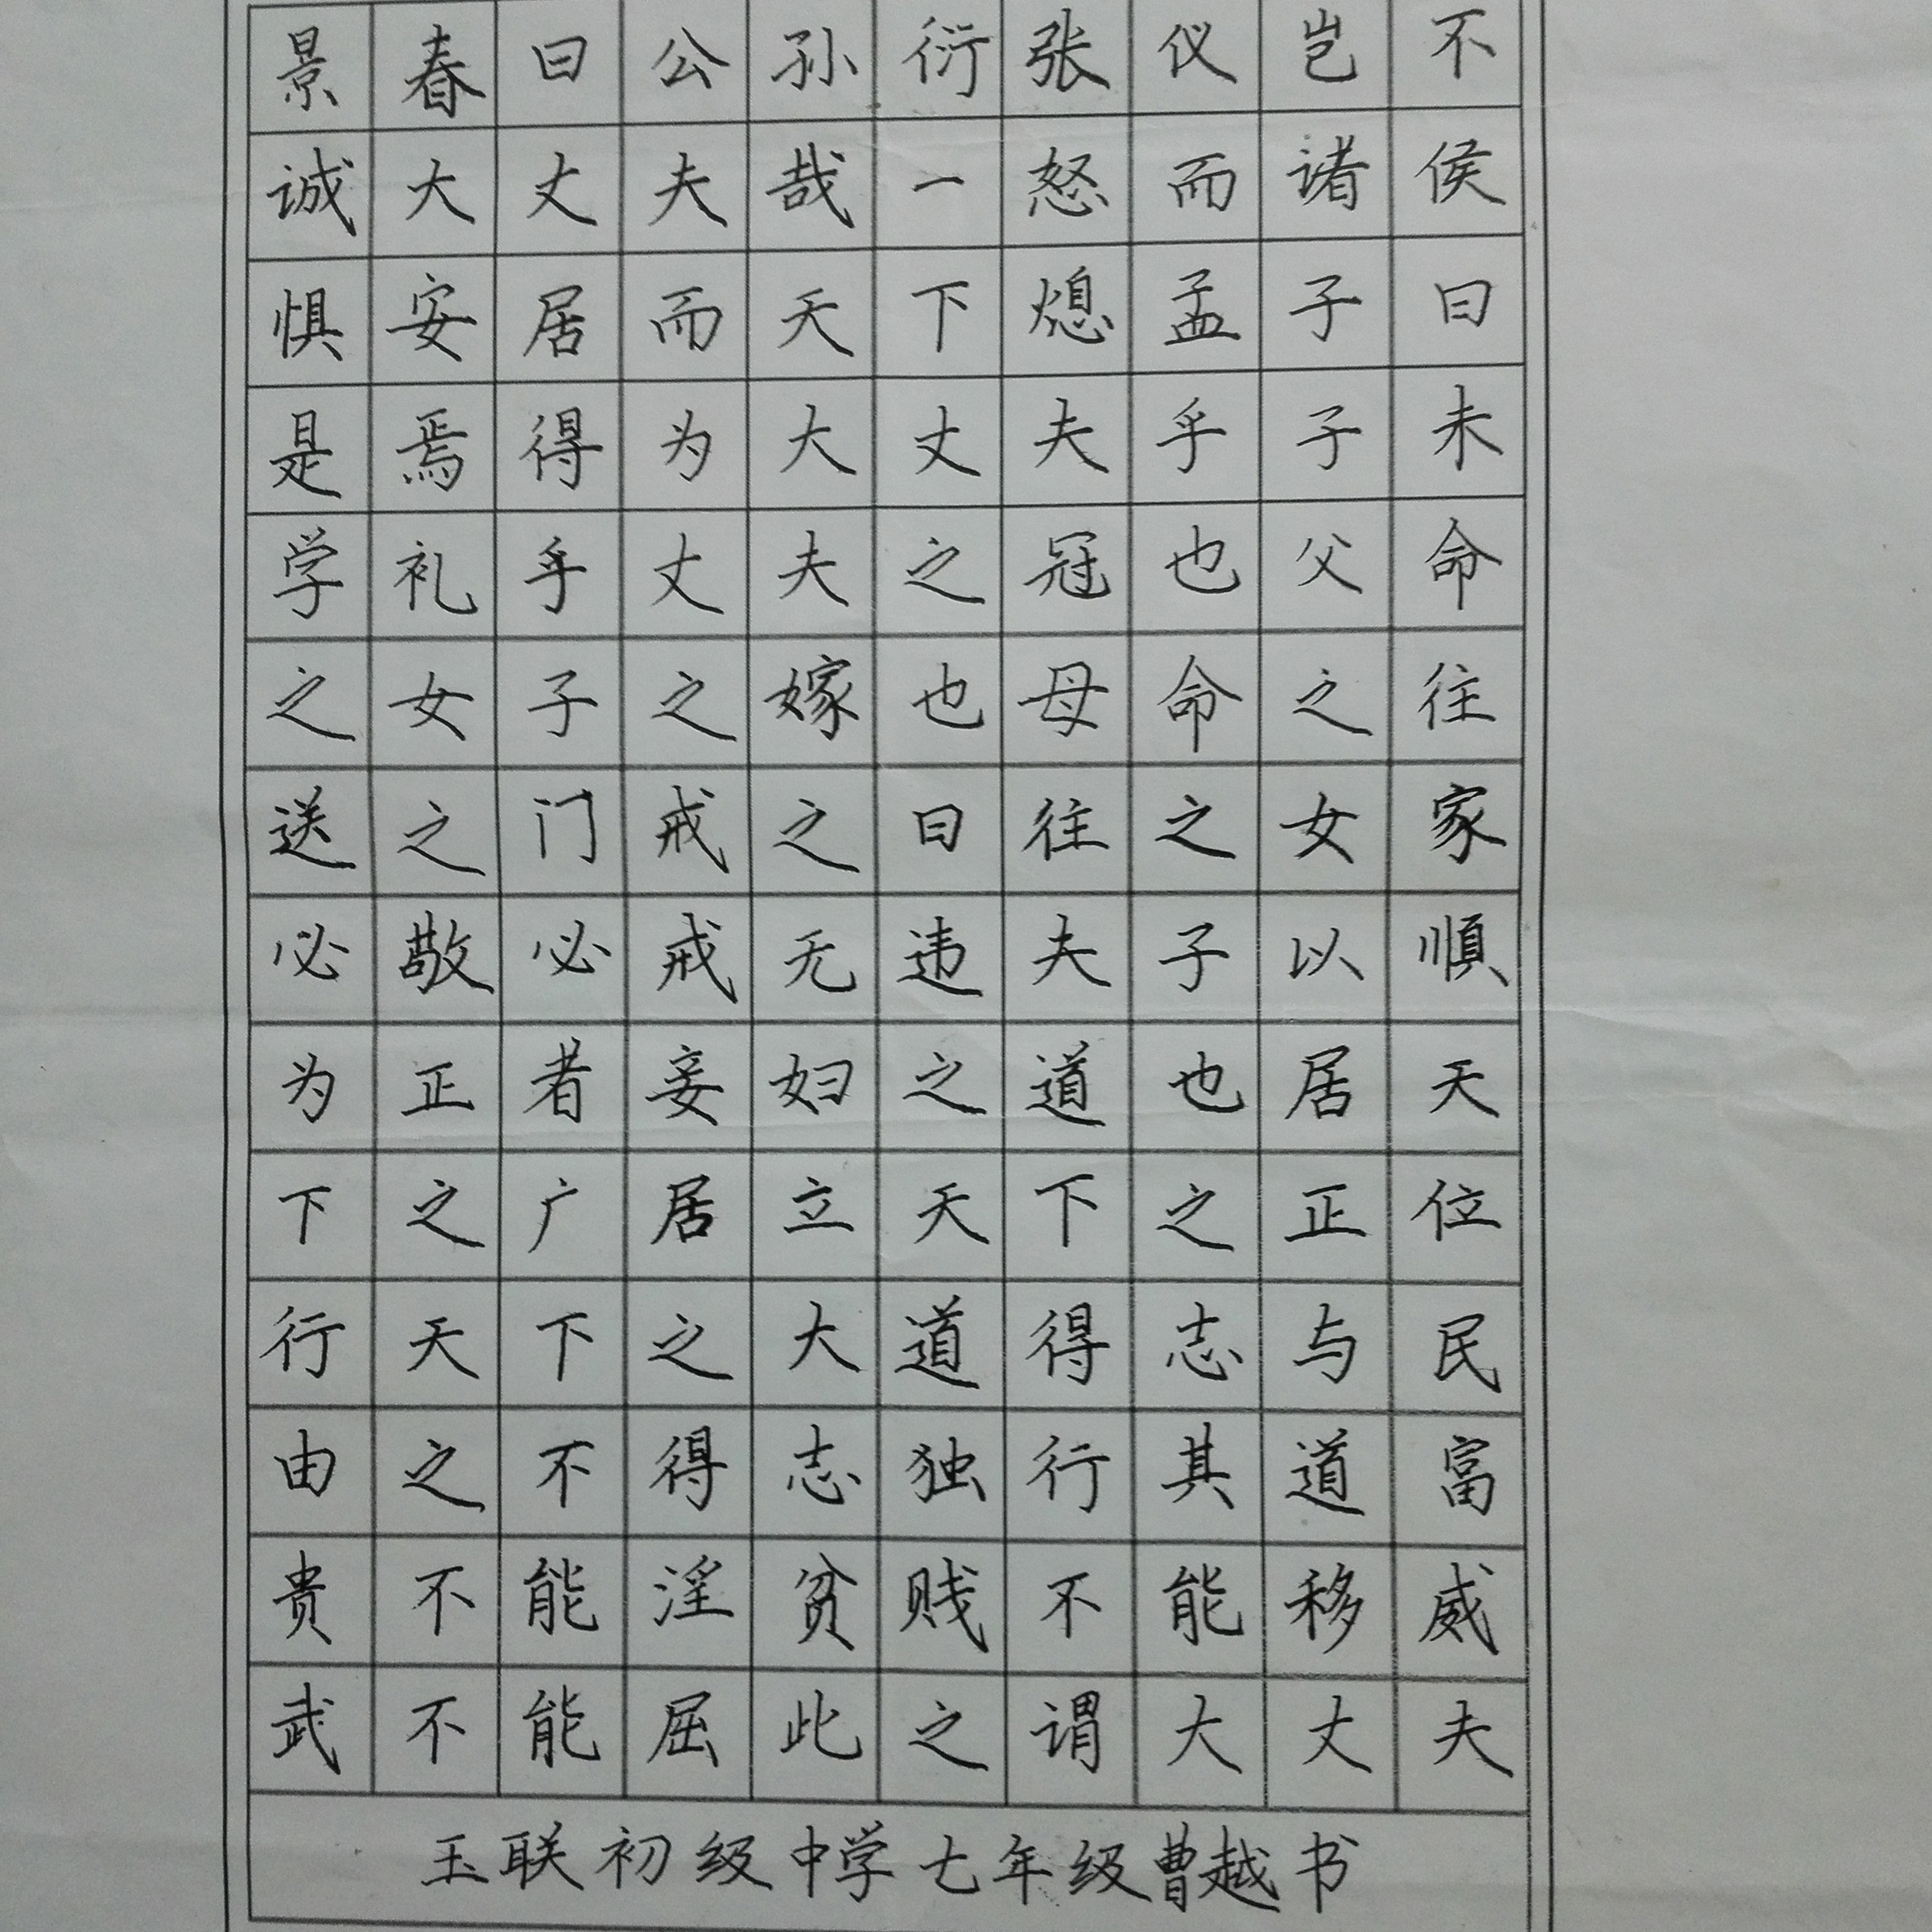 景春曰公孙衍张仪岂不
诚大丈夫哉一怒而诸侯
惧安居而天下熄孟子曰
是焉得为大丈夫乎子未
学礼乎丈夫之冠也父命
之女子之嫁也母命之往
送之门戒之曰往之女家
必敬必戒无违夫子以顺
为正者妾妇之道也居天
下之广居立天下之正位
行天下之大道得志与民
由之不得志独行其道富
贵不能淫贫贱不能移威
武不能屈此之谓大丈夫
玉联初级中学七年级曹越书